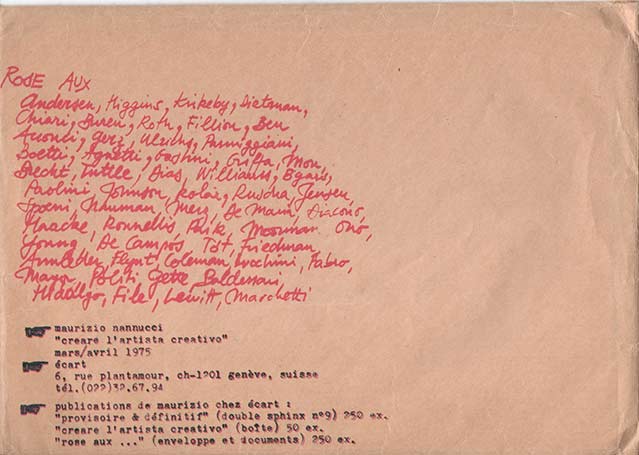 ROSE AUX
Andersen, Higgins, Kirkeby, Dietman,
Chiari, Buren, Roth, Fillion, Ben
Acconci, Gerz, Ulrichs, Parmiggiani,
Boetti, Agnetti, Gastini, Griffa, Mon
Brecht, Tuttle, Dias, Williams, Bgari,
Paolini, Johnson, Kolar, Ruscha, Jensen
Spoerri, Nauman, Merz, De Maria, Diacono,
Haacke, Kounellis, Paik, Moorman Ono,
Young, De Campos, Tot, Friedman,
Armleder, Flynt, Coleman, Lucchini, Fabro,
Mayor, Politi Gette, Baldessari
Hidalgo, File, Lewitt, Marchetti
maurizio nannucci
"creare l'artista creativo"
mars/avril 1975
écart
6, rue plantamour, ch-1201 genève, suisse
tél.(022)32.67.94
publications de maurizio chez écart :
"provisoire & définitif" (double sphinx nº9) 250 ex.
"creare l'artista creativo" (boîte) 50 ex.
"rose aux ..." (enveloppe et documents) 250 ex.